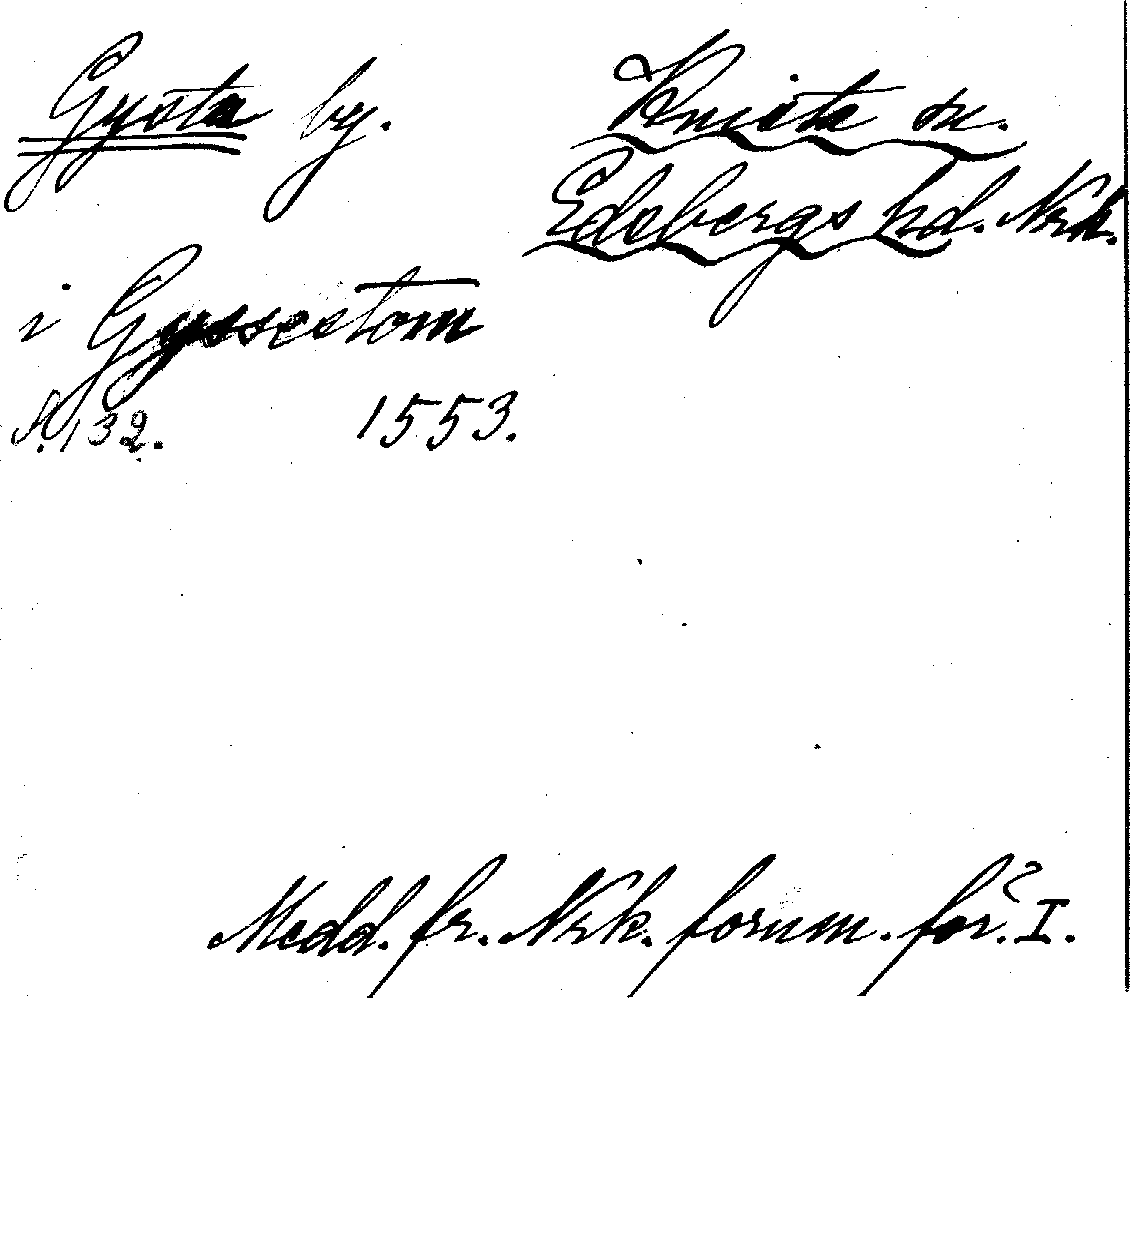 Gysta by. Knista sn.
Edsbergs hd. Nrk.
i Gyssestom
S. 132. 1553.
Medd. fr. Nrk. fornm. för. I.